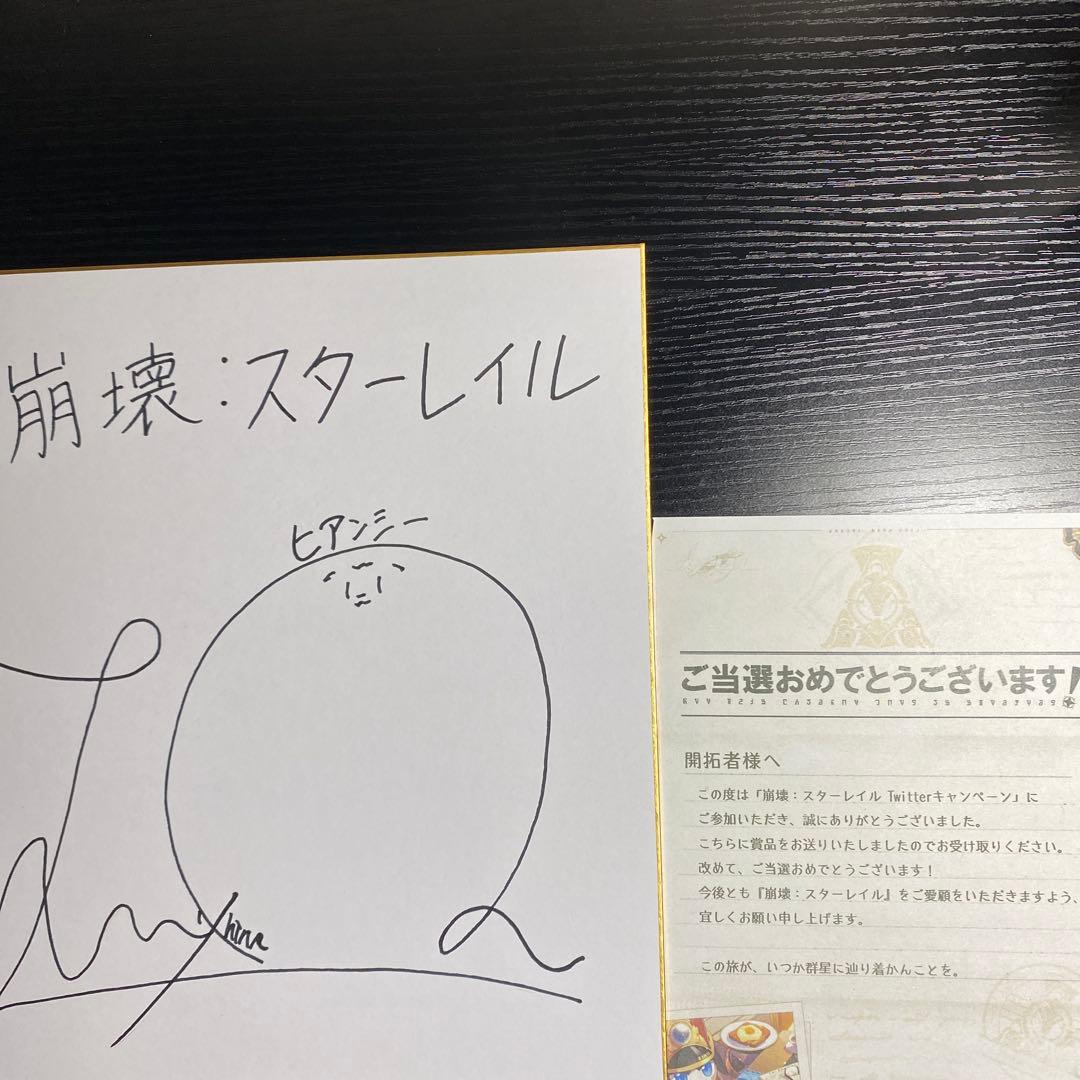 崩壊:スターレイル
ヒアンシー
ご当選おめでとうございます!
開拓者様へ
この度は「崩壊:スターレイル Twitterキャンペーン」に
ご参加いただき、誠にありがとうございました。
こちらに賞品をお送りいたしましたのでお受け取りください。
改めて、ご当選おめでとうございます!
今後とも『崩壊:スターレイル』をご愛顧をいただきますよう、
宜しくお願い申し上げます。
この旅が、いつか群星に辿り着かんことを。